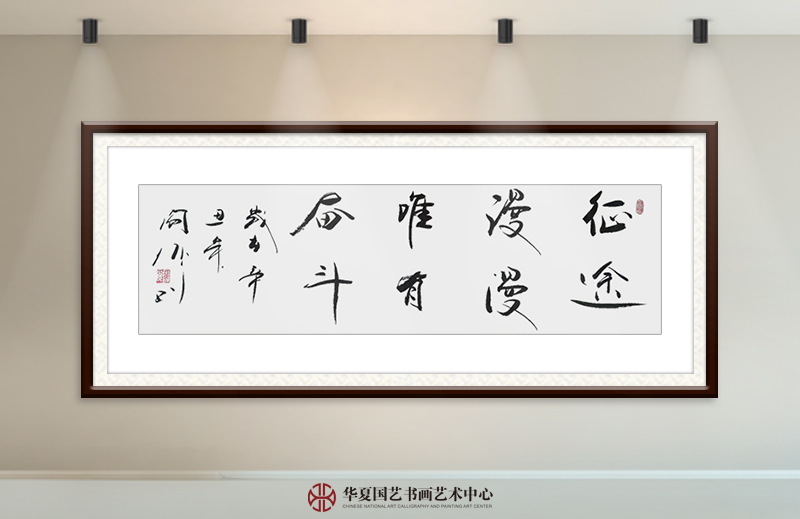 征途
漫漫
唯有
奋斗
岁在辛
丑年
华夏国艺书画艺术中心
CHINESE NATIONAL ART CALLIGRAPHY AND PAINTING ART CENTER